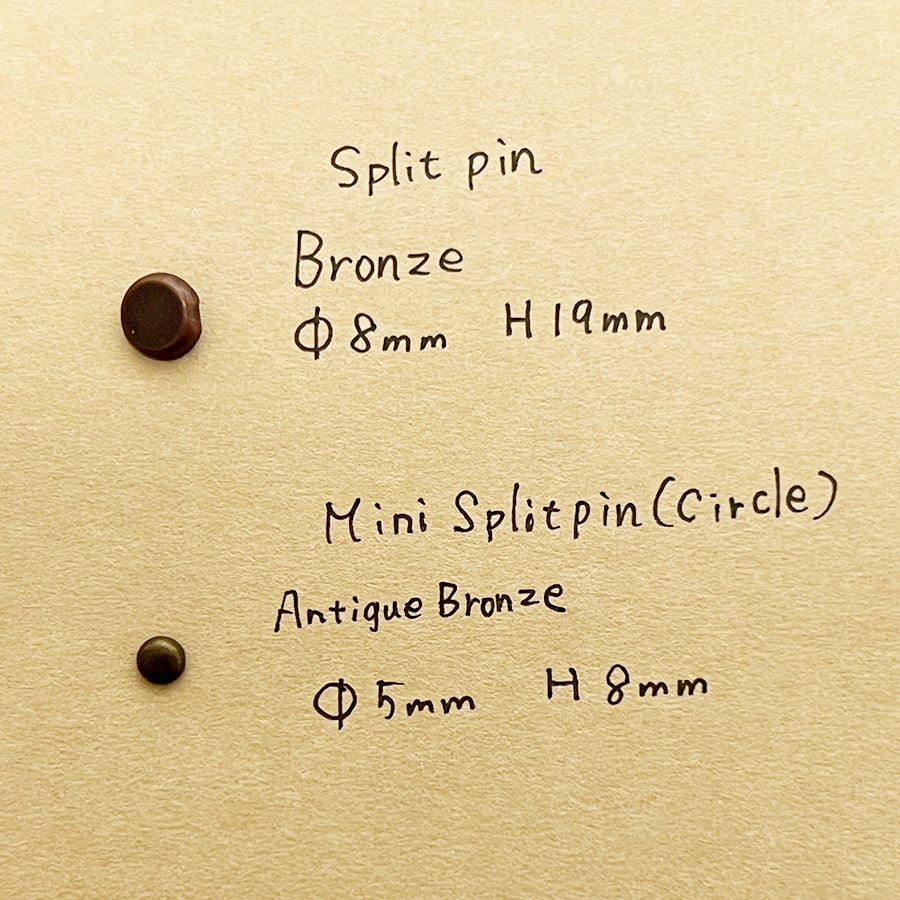 Split pin
Bronze
Φ 8mm H 19mm
Mini Splitpin (Circle)
Antique Bronze
Φ 5mm H 8mm